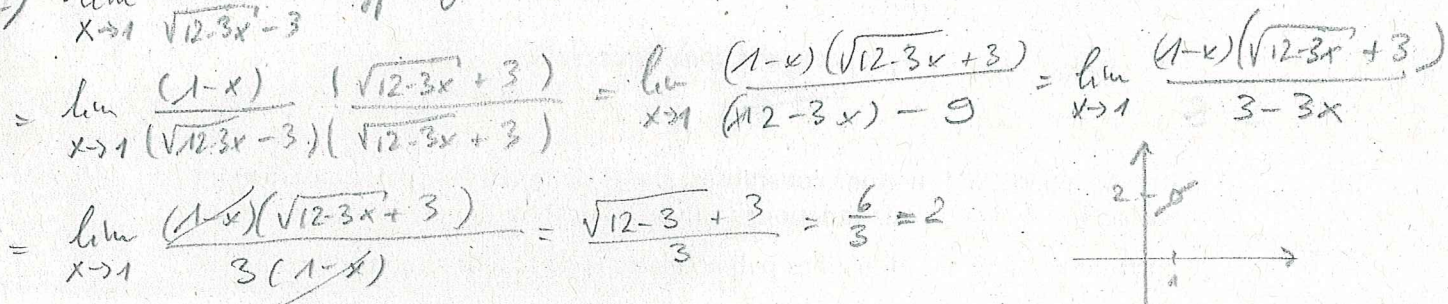 x→1 √(12-3x) - 3
= lim x→1 (1-x) (√(12-3x) + 3) / (√(12-3x) - 3)(√(12-3x) + 3) = lim x→1 (1-x)(√(12-3x) + 3) / (12-3x) - 9 = lim x→1 (1-x)(√(12-3x) + 3) / 3-3x
= lim x→1 (1-x)(√(12-3x) + 3) / 3(1-x) = √(12-3) + 3 / 3 = 6/3 = 2
2
1